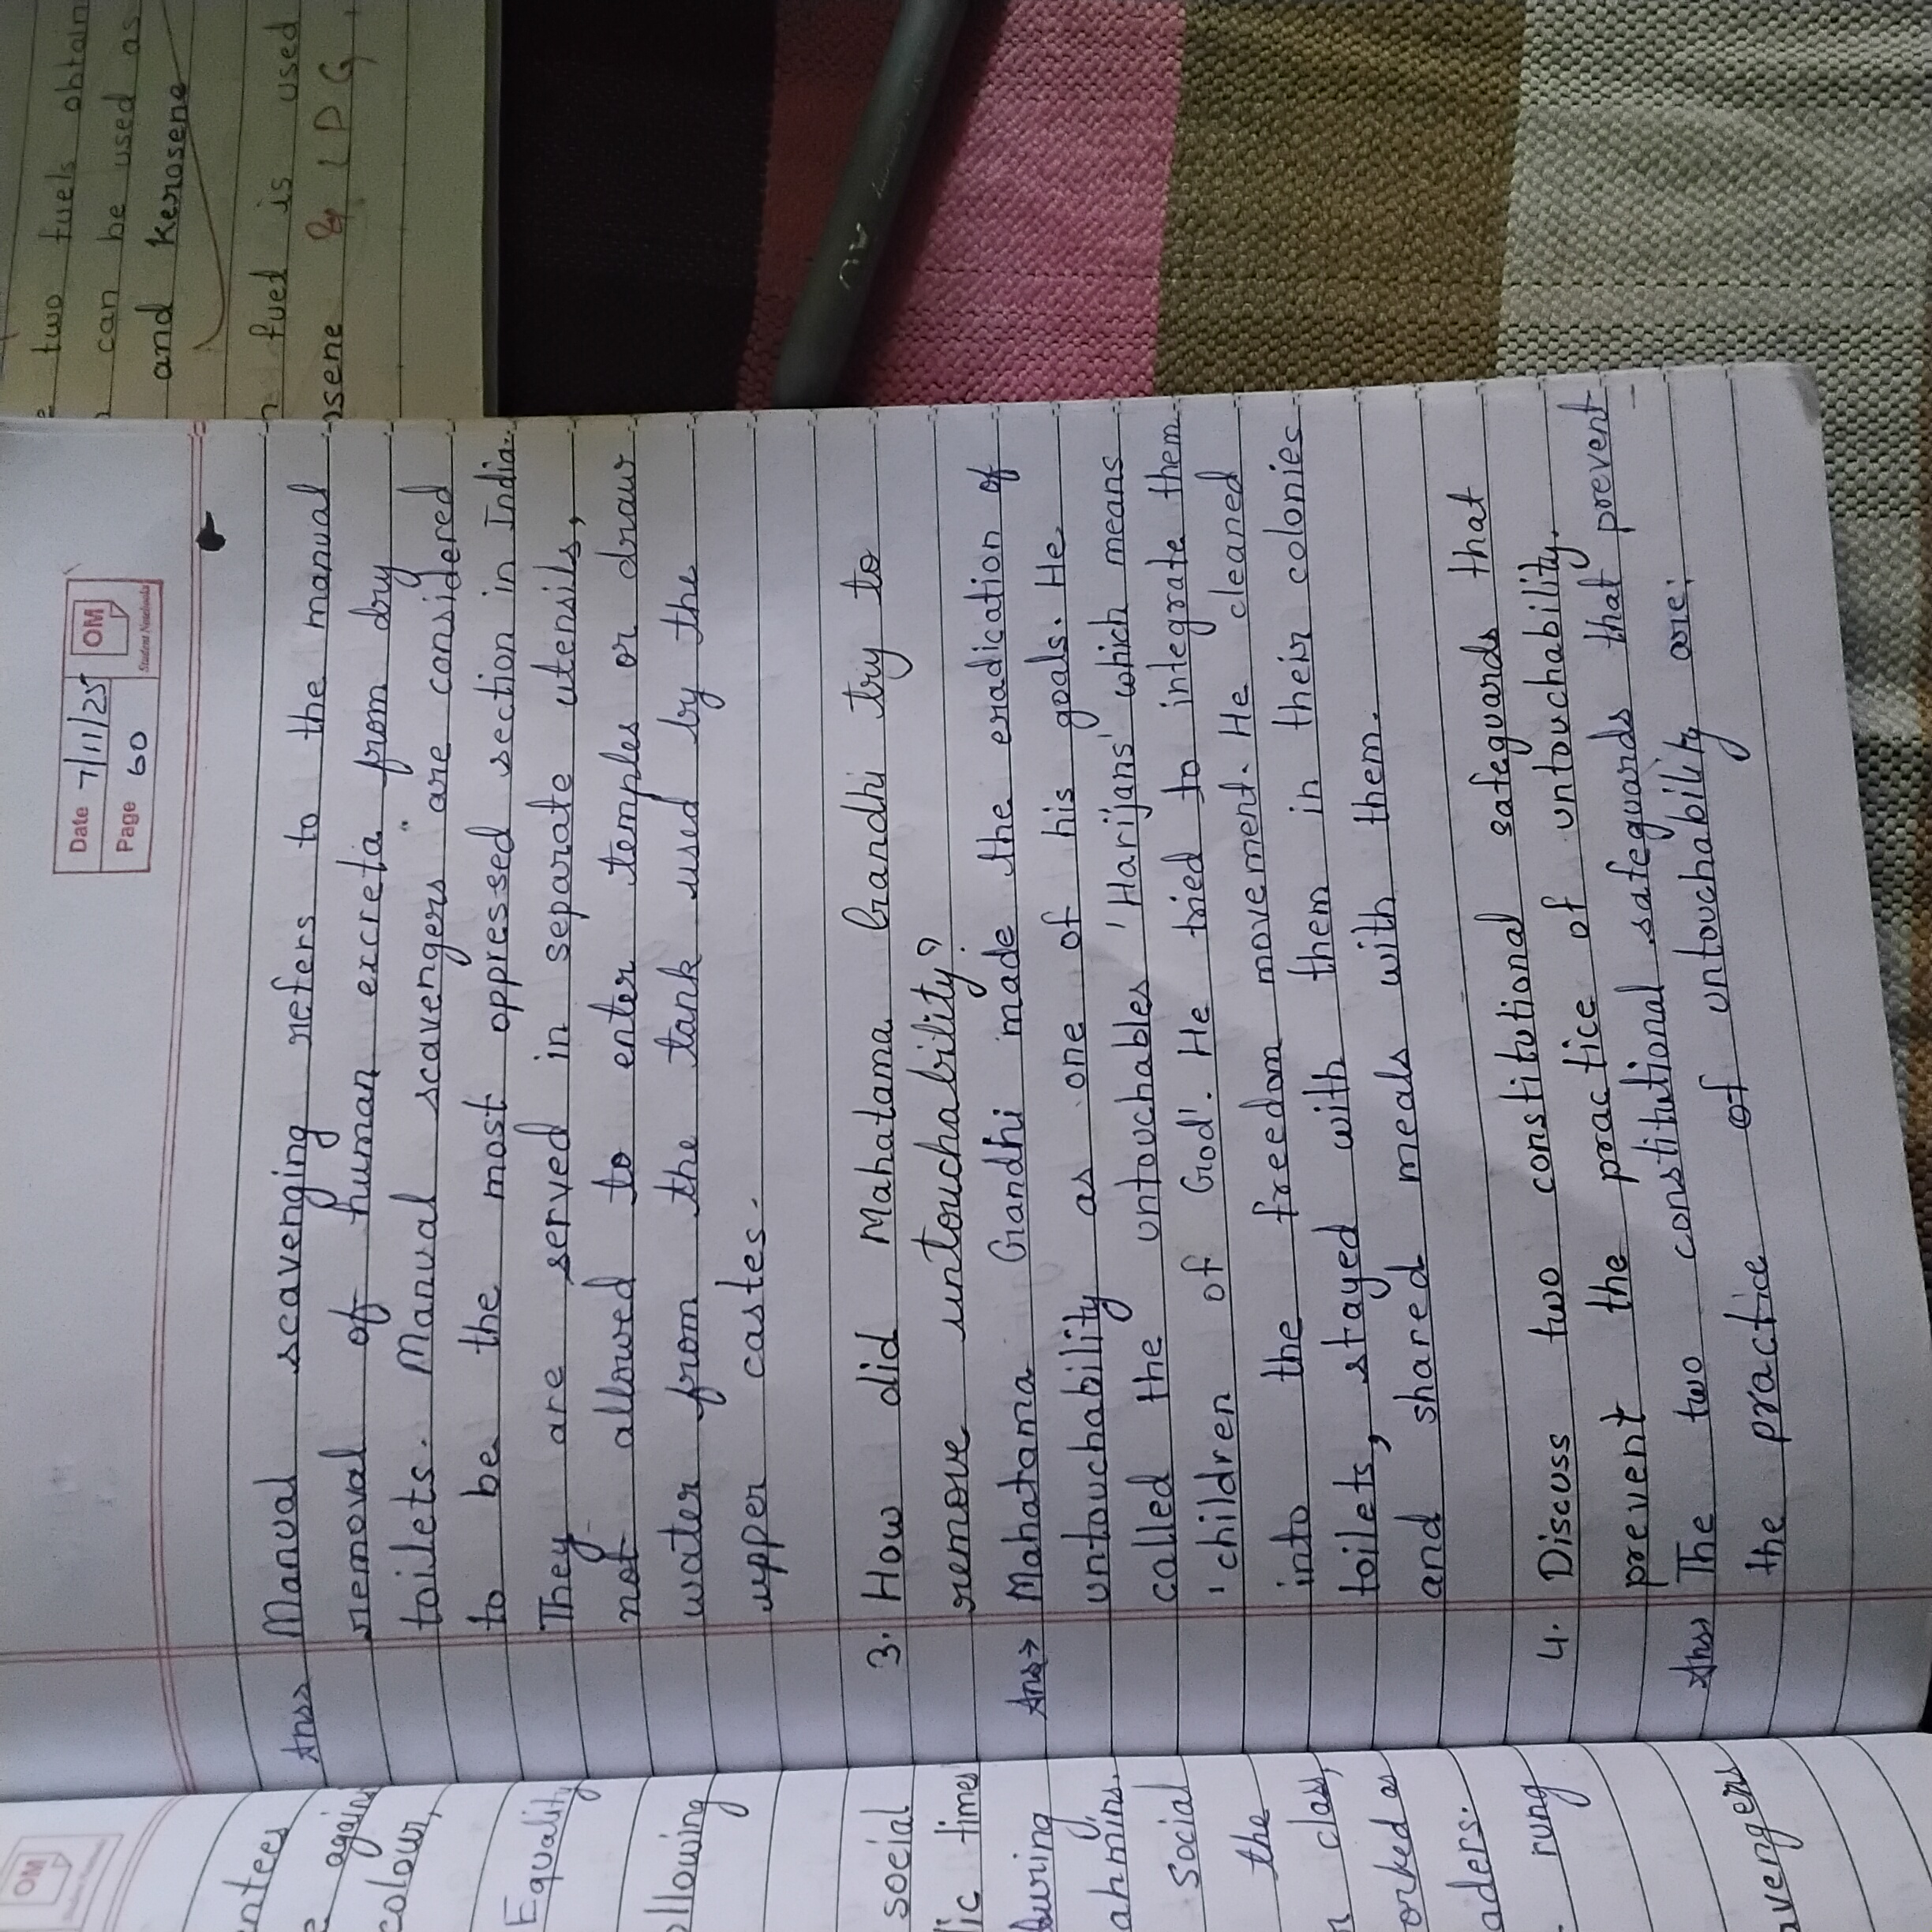 Date 7/11/25
Page 60
OM
Student Notebooks
Ans> Manual scavenging refers to the manual
removal of human excreta from dry
toilets. Manual scavengers are considered
to be the most oppressed section in India.
They are served in separate utensils,
not allowed to enter temples or draw
water from the tank used by the
upper castes.
3. How did Mahatama Gandhi try to
remove untouchability?
Ans> Mahatama Gandhi made the eradication of
untouchability as one of his goals. He
called the untouchables 'Harijans' which means
'children of God'. He tried to integrate them
into the freedom movement. He cleaned
toilets, stayed with them in their colonies
and shared meals with them.
4. Discuss two constitutional safeguards that
prevent the practice of untouchability.
Ans> The two constitutional safeguards that prevent
the practice of untouchability are:
two fuels obtain
can be used as
and kerosene
fuel is used
sene & LPG
OM
ntees
again
colour,
Equality
llowing
social
lic times
during
ahmins.
social
the
n class,
orked as
aders.
rung
avengers